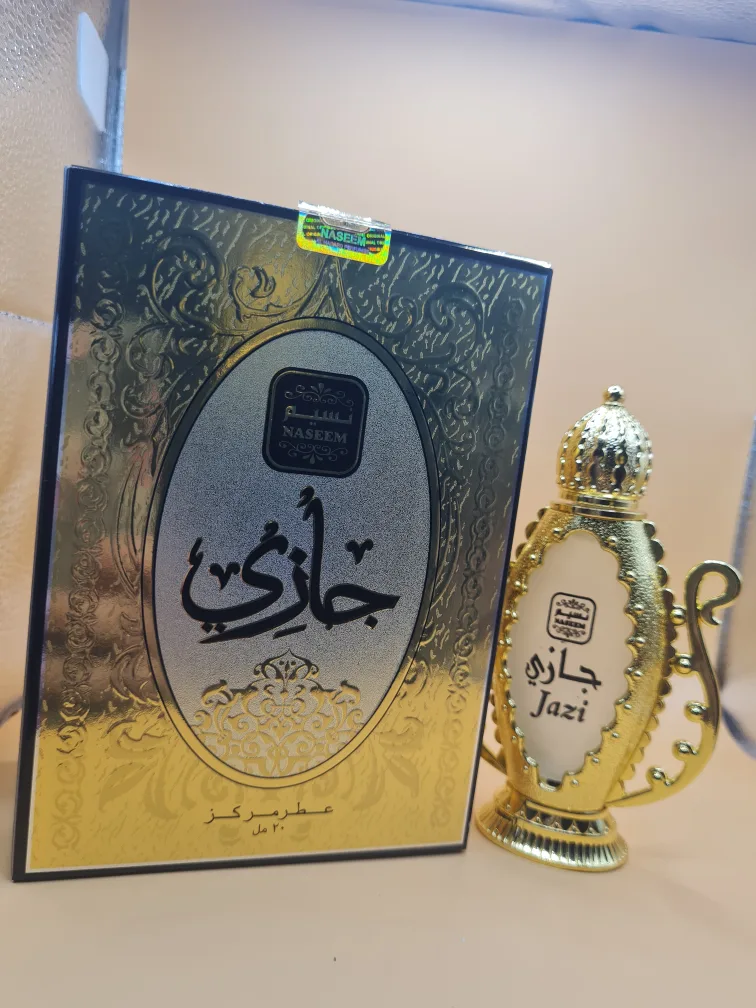 NASEEM
نسيم
NASEEM
جازي
عطر مركز
٢٠ مل
نسيم
NASEEM
جازي
Jazi